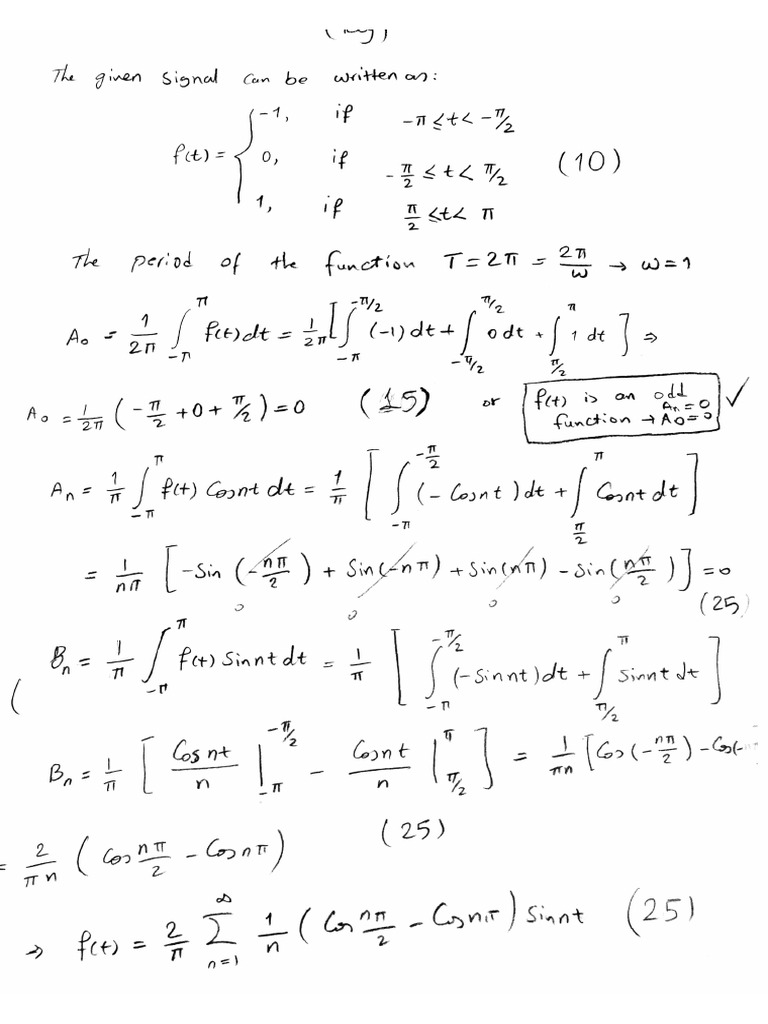 The given signal can be written as:
f(t) = { -1, if -π ≤ t < -π/2
0, if -π/2 ≤ t < π/2 (10)
1, if π/2 ≤ t < π
The period of the function T = 2π = 2π/ω → ω = 1
A₀ = 1/2π ∫_{-π}^{π} f(t) dt = 1/2π [ ∫_{-π}^{-π/2} (-1) dt + ∫_{-π/2}^{π/2} 0 dt + ∫_{π/2}^{π} 1 dt ] ⇒
A₀ = 1/2π (-π/2 + 0 + π/2) = 0 (15) or f(t) is an odd function → Aₙ = 0 A₀ = 0 ✓
Aₙ = 1/π ∫_{-π}^{π} f(t) Cosnt dt = 1/π [ ∫_{-π}^{-π/2} (-Cosnt) dt + ∫_{π/2}^{π} Cosnt dt ]
= 1/nπ [ -Sin(-nπ/2) + Sin(-nπ) + Sin(nπ) - Sin(nπ/2) ] = 0
0 0 0 0 (25)
Bₙ = 1/π ∫_{-π}^{π} f(t) Sinnt dt = 1/π [ ∫_{-π}^{-π/2} (-Sinnt) dt + ∫_{π/2}^{π} Sinnt dt ]
Bₙ = 1/π [ Cosnt/n |_{-π}^{-π/2} - Cosnt/n |_{π/2}^{π} ] = 1/πn [ Cos(-nπ/2) - Cos(-
= 2/πn (Cos nπ/2 - Cosnπ) (25)
⇒ f(t) = 2/π ∑_{n=1}^{∞} 1/n (Cos nπ/2 - Cosnπ) Sinnt (25)